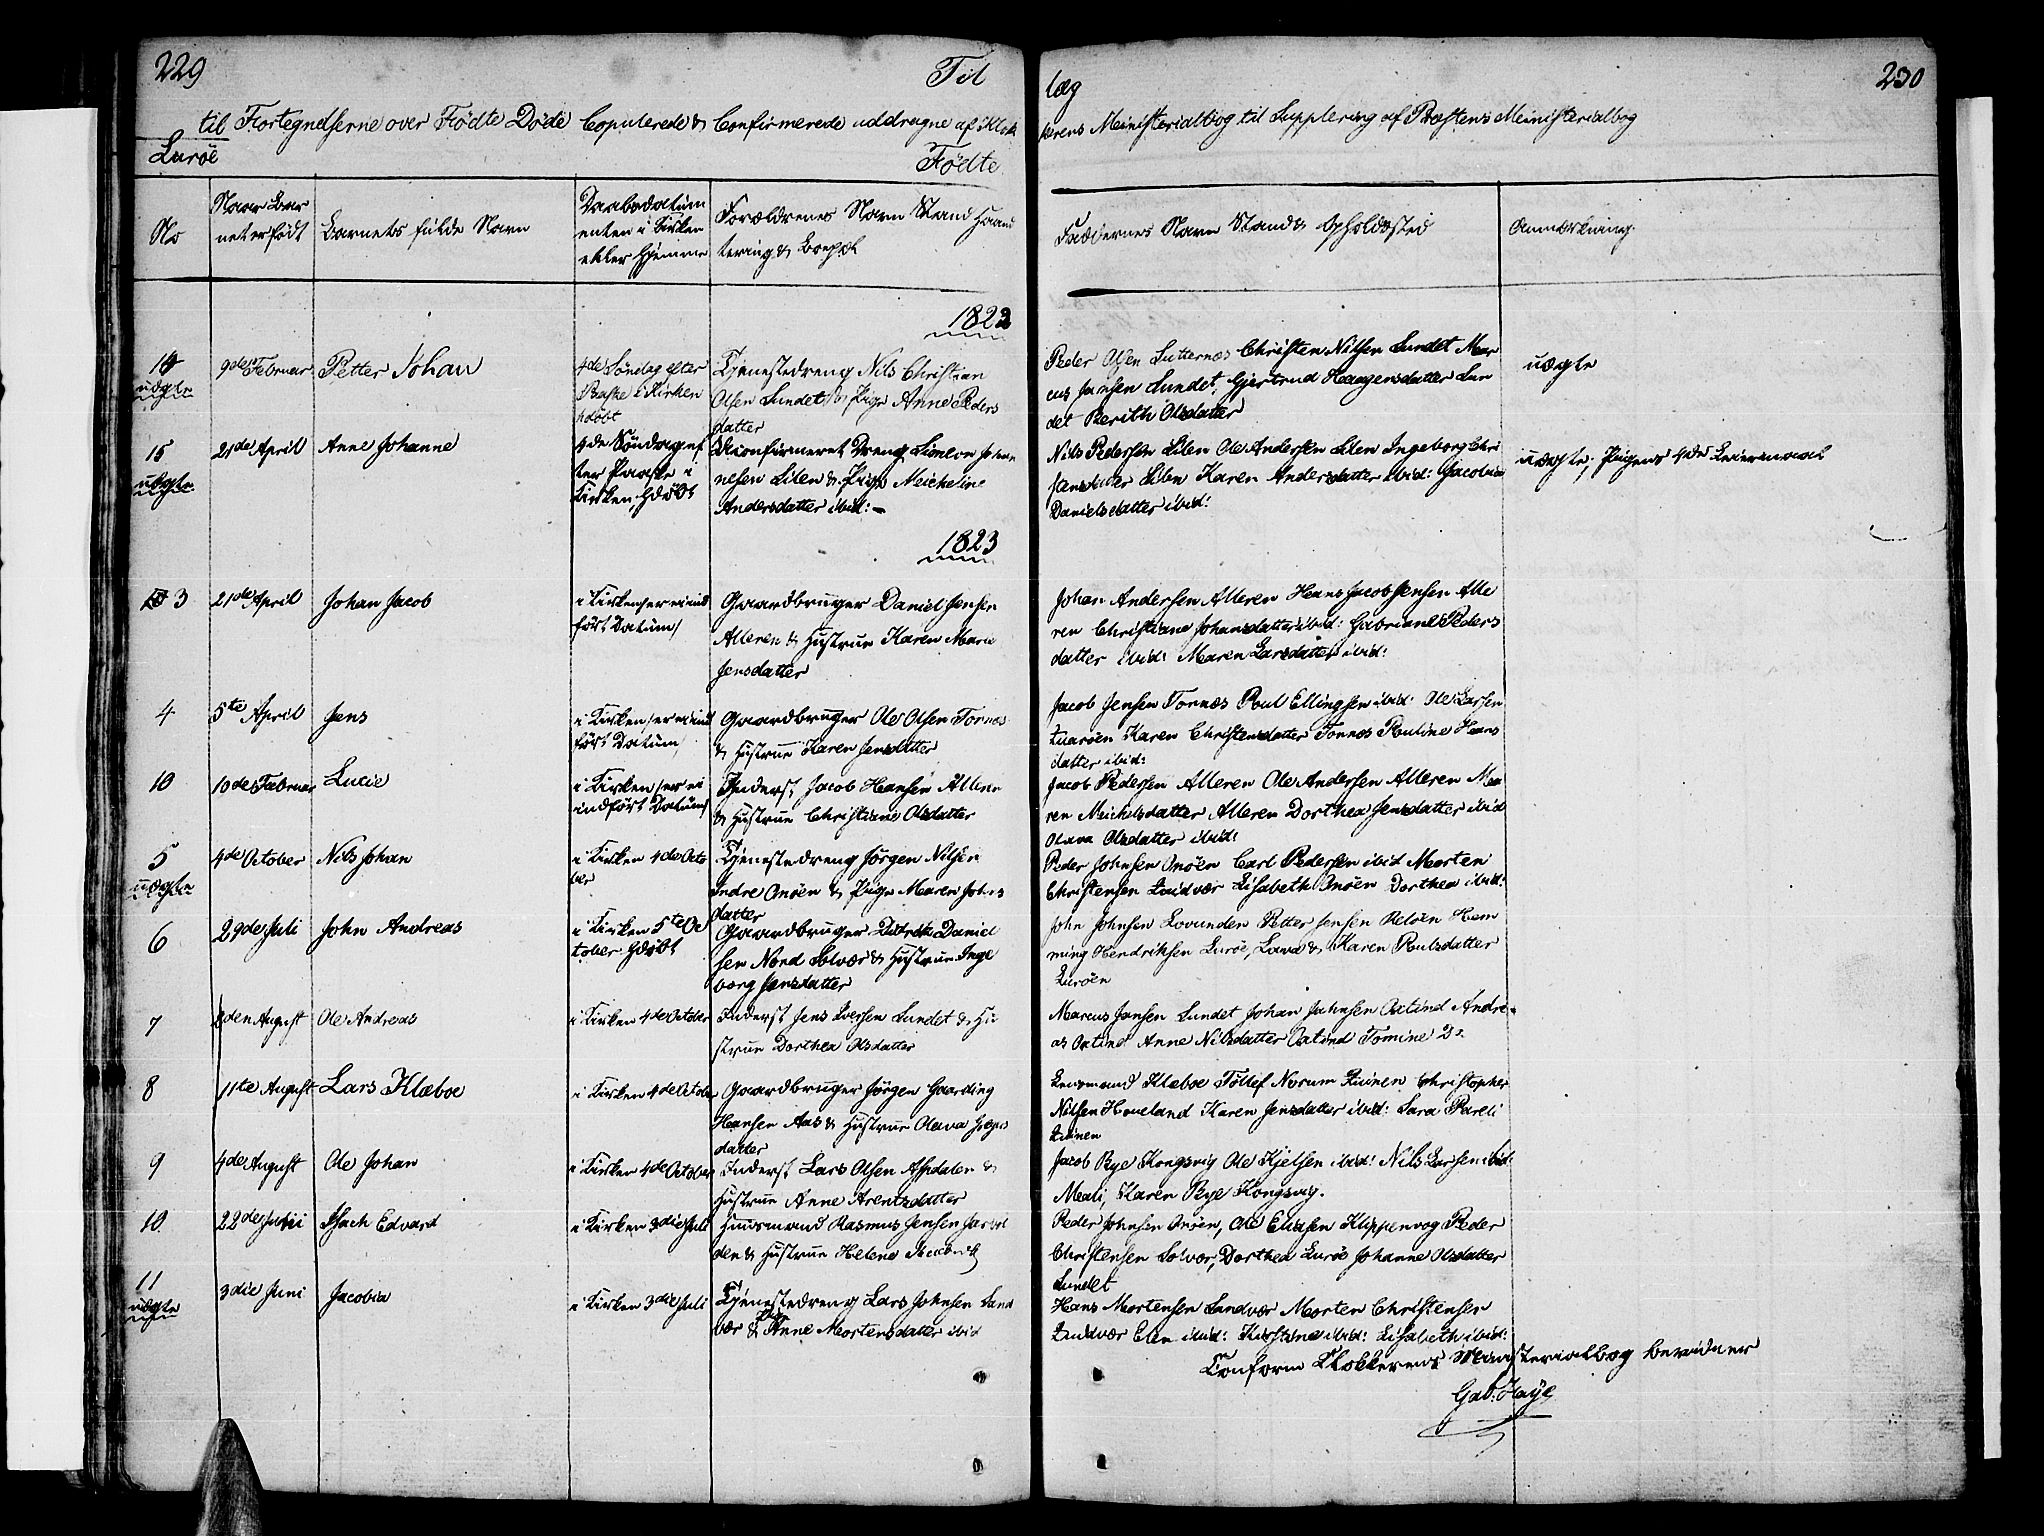 229
Til
læg
230
til Fortegnelserne over Fødte Døde Copulerede & Confirmerede uddragne af Klok
kerens Meinisterialbog til Supplering af Præstens Meinisterialbog
Lurøe
Fødte
No
Naar Bar
net er født
Barnets fulde Navn
Daabsdatum
enten i Kirken
eller hjemme
Forældrenes Navn Stand Haand
tering & Bopæl
Faddernes Navn Stand & Opholdssted
Anmærkning
1822
14
uægte
9de Februar
Petter Johan
4de Søndag efter
Paaske i Kirken
hdøbt
Tjenestedreng Nils Christian
Olsen Sundet & Pige Anne Peders
datter
Peder Olsen Sutternæs Christen Nilsen Sundet Mar
cus Jansen Sundet, Gjertrud Haagensdatter Sun
det Berith Olsdatter
uægte
15
uægte
21de April
Anne Johanne
4de Søndag ef
ter Paaske i
Kirken hdøbt
Uconfirmeret Dreng Simeon Johan
nesen Silen & Pige Meicheline
Andersdatter ibid: —
Nils Pedersen Silen Ole Andersen Silen Ingeborg Chri
stensdatter Silen Karen Andersdatter ibid: Jacobia
Danielsdatter ibid:
uægte, Pigens 4de Leiermaal
1823
3
21de April
Johan Jacob
i Kirken /er ei ind
ført Datum/
Gaardbruger Daniel Jensen
Alleren & Hustrue Karen Marie
Jensdatter
Johan Andersen Alleren Hans Jacob Jensen Alle
ren Christiane Johansdatter ibid: Gabriane Peders
datter ibid: Maren Larsdatter ibid:
4
5te April
Jens
i Kirken /er ei ind
ført Datum/
Gaardbruger Ole Olsen Tornæs
& Hustrue Karen Jensdatter
Jacob Jensen Tornæs Poul Ellingsen ibid: Ole Larsen
Luarøen Karen Christensdatter Tonnes Pauline Hans
datter ibid:
10
10de Februar
Lucie
i Kirken /er ei
indført Datum/
Inderst Jacob Hansen Alleren
& Hustrue Christiane Olsdatter
Jacob Pedersen Alleren Ole Andersen Alleren Ma
ren Meichelsdatter Alleren Dorthea Jensdatter ibid
Olava Olsdatter ibid:
5
uægte
4de October
Nils Johan
i Kirken 4de Octo
ber
Tjenestedreng Jørgen Nilsen
Indre Onøen & Pige Maren Johns
datter
Peder Johnsen Onøen Carl Pedersen ibid Morten
Christensen Lundvær Lisabeth Onøen Dorthea ibid:
6
29de Juli
John Andreas
i Kirken 5te Oc
tober hdøbt
Gaardbruger Didrik Daniel
sen Nord Solvær & Hustrue Inge
borg Jensdatter
John Johnsen Lovunden Petter Jensen Reløen Hem
ming Hendriksen Lurøe, Lava & Karen Poulsdatter
Lurøen
7
8den August
Ole Andreas
i Kirken 4de October
Inderst Jens Iversen Sundet & Hu
strue Dorthea Olsdatter
Marcus Jansen Sundet Johan Johnsen Oxtind Andre
as Oxtind Anne Nilsdatter Oxtind Tomine Do
8
11te August
Lars Klæboe
i Kirken 4de October
Gaardbruger Jørgen Gaarding
Hansen Aas & Hustrue Olava Holgers
datter
Lensmand Klæboe Tollef Norum Zuinen Christopher
Nilsen Hoveland Karen Jensdatter ibid: Sara Pareli
Zuinen
9
4de August
Ole Johan
i Kirken 4de October
Inderst Lars Olsen Aspdalen &
Hustrue Anne Arentsdatter
Jacob Bye Kongsvig Ole Kjelsen ibid: Nils Larsen ibid
Mali, Karen Bye Kongsvig.
10
22de Juni
Isach Edvard
i Kirken 3die Juli
Huusmand Rasmus Jensen
den & Hustrue Helene
Peder Johnsen Onøen, Ole Eliasen Klippenvog Peder
Christensen Solvær, Dorthea Lurøe Johanne Olsdatter
Sundet
11
uægte
3die Juni
Jacobia
i Kirken 3die Juli
Tjenestedreng Lars Johnsen Sand
vær & Pige Anne Mortensdatter ibid
Hans Mortensen Sandvær Morten Christensen
Sandvær Elen ibid: Kirstine ibid: Lisabeth ibid:
Conform Klokkerens Ministerialbog bevidner
Gab. Haye